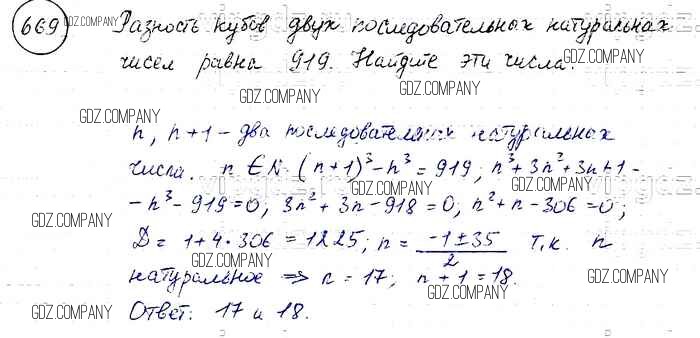 669 GDZ.COMPANY Разность кубов двух последовательных натуральных
чисел равна 919. Найдите эти числа. GDZ.COMPANY
GDZ.COMPANY GDZ.COMPANY
n, n+1 - два последовательных натуральных
GDZ.COMPANY
числа. n ∈ N. (n+1)³ - n³ = 919; n³ + 3n² + 3n + 1 -
GDZ.COMPANY GDZ.COMPANY
- n³ - 919 = 0; 3n² + 3n - 918 = 0; n² + n - 306 = 0;
GDZ.COMPANY
D = 1 + 4 · 306 = 1225; n = (-1 ± 35)/2 т.к. n
GDZ.COMPANY
натуральное ⇒ n = 17; n + 1 = 18.
GDZ.COMPANY GDZ.COMPANY
GDZ.COMPANY Ответ: 17 и 18. GDZ.COMPANY